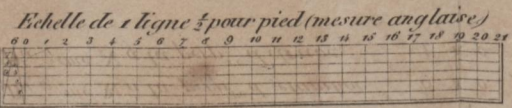 Echelle de 1 ligne ½ pour pied (mesure anglaise)
6 0 1 2 3 4 5 6 7 8 9 10 11 12 13 14 15 16 17 18 19 20 21